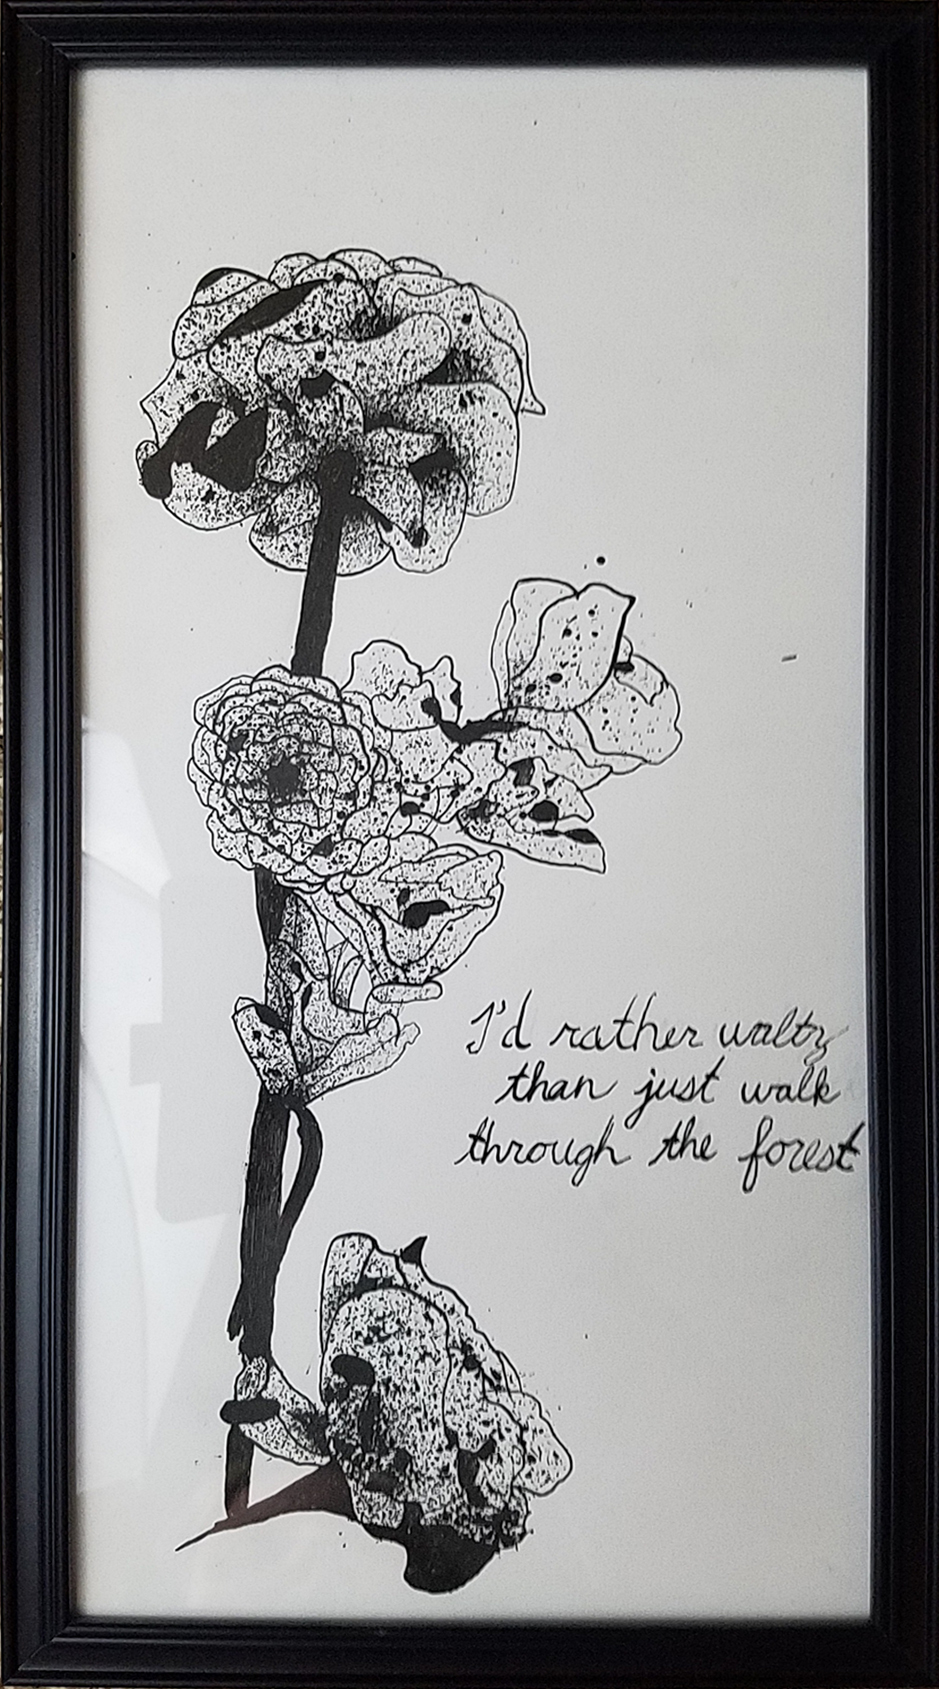 I'd rather waltz
than just walk
through the forest